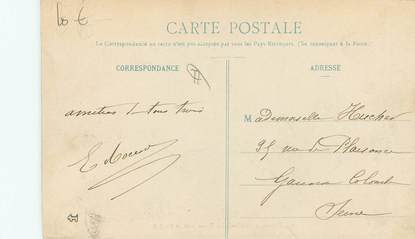 10 €
CARTE POSTALE
La Correspondance au recto n'est pas acceptée par tous les Pays Étrangers. (Se renseignant à la Poste).
CORRESPONDANCE
ADRESSE
amitiés à tous trois
Mademoiselle
95 rue de Plaisance
Garenne Colombes
Seine